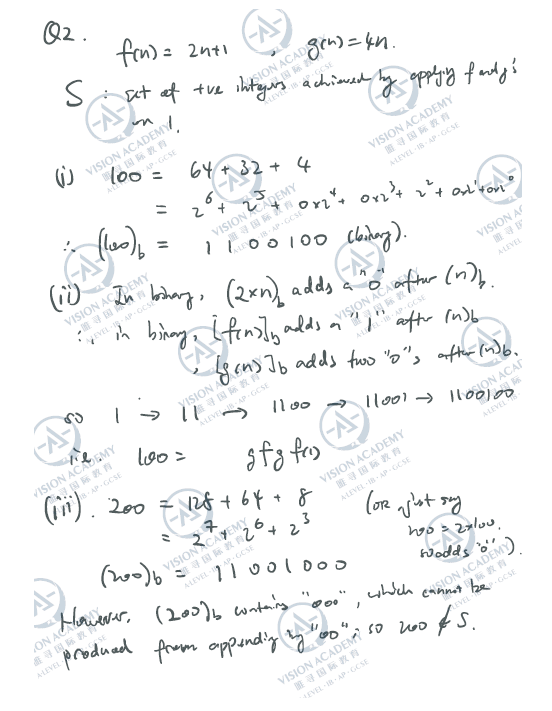 Q2.
f(n) = 2n+1 , g(n) = 4n.
S : set of +ve integers achieved by applying f and g's
on 1.
(i) 100 = 64 + 32 + 4
= 2^6 + 2^5 + 0x2^4 + 0x2^3 + 2^2 + 0x2^1 + 0x2^0
∴ (100)_b = 1100100 (binary).
(ii) In binary, (2xn)_b adds a "0" after (n)_b.
∴, in binary, [f(n)]_b adds a "1" after (n)_b
, [g(n)]_b adds two "0"s after (n)_b.
so 1 → 11 → 1100 → 11001 → 1100100
i.e. 100 = gfgf(1)
(iii). 200 = 128 + 64 + 8
= 2^7 + 2^6 + 2^3
(OR just say
200 = 2x100,
so adds "0").
(200)_b = 11001000
However, (200)_b contains "000", which cannot be
produced from appending by "00"; so 200 ∉ S.
VISION ACADEMY
唯寻国际教育
ALEVEL·IB·AP·GCSE